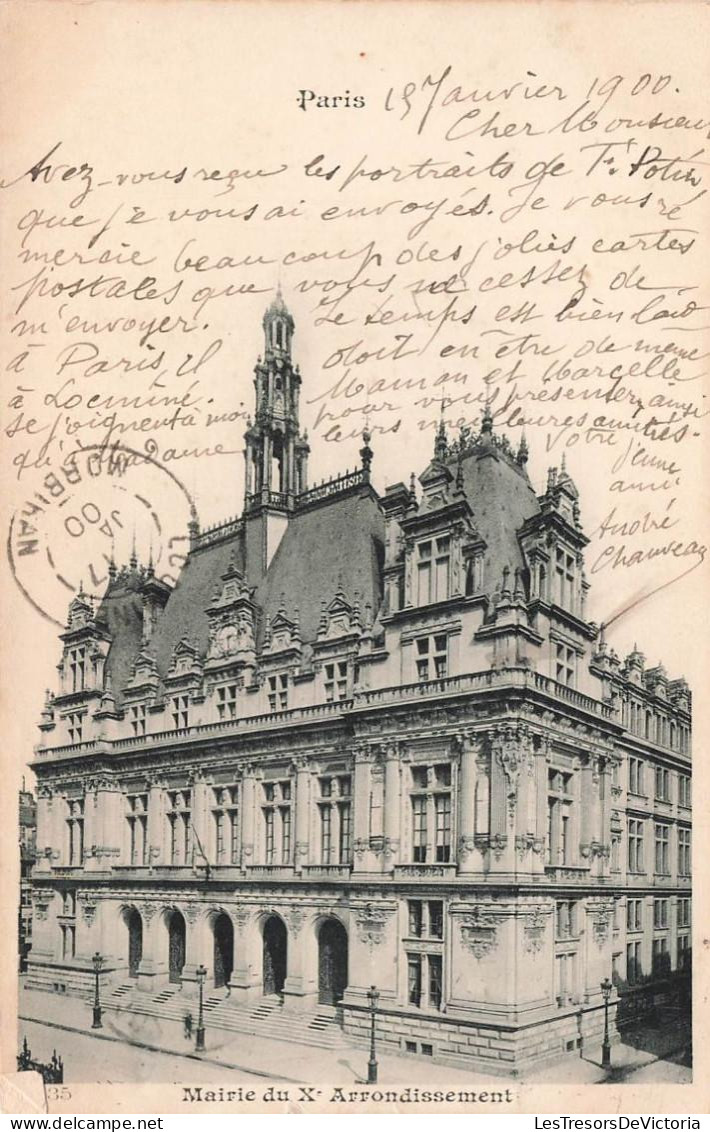 Paris 15 Janvier 1900.
Cher Monsieur
Avez-vous reçu les portraits de F. Potin
que je vous ai envoyés. Je vous ré
mercie beaucoup des jolies cartes
postales que vous ne cessez de
m'envoyer. Le temps est bien laid
à Paris, il doit en être de même
à Locminé. Maman et Marcelle
se joignent à moi pour vous présenter ainsi
qu'à Madame leurs meilleures amitiés.
Votre
jeune
ami
André
Chauveau
MORBIHAN
17
JA
00
35
Mairie du Xe Arrondissement
LesTresorsDeVictoria